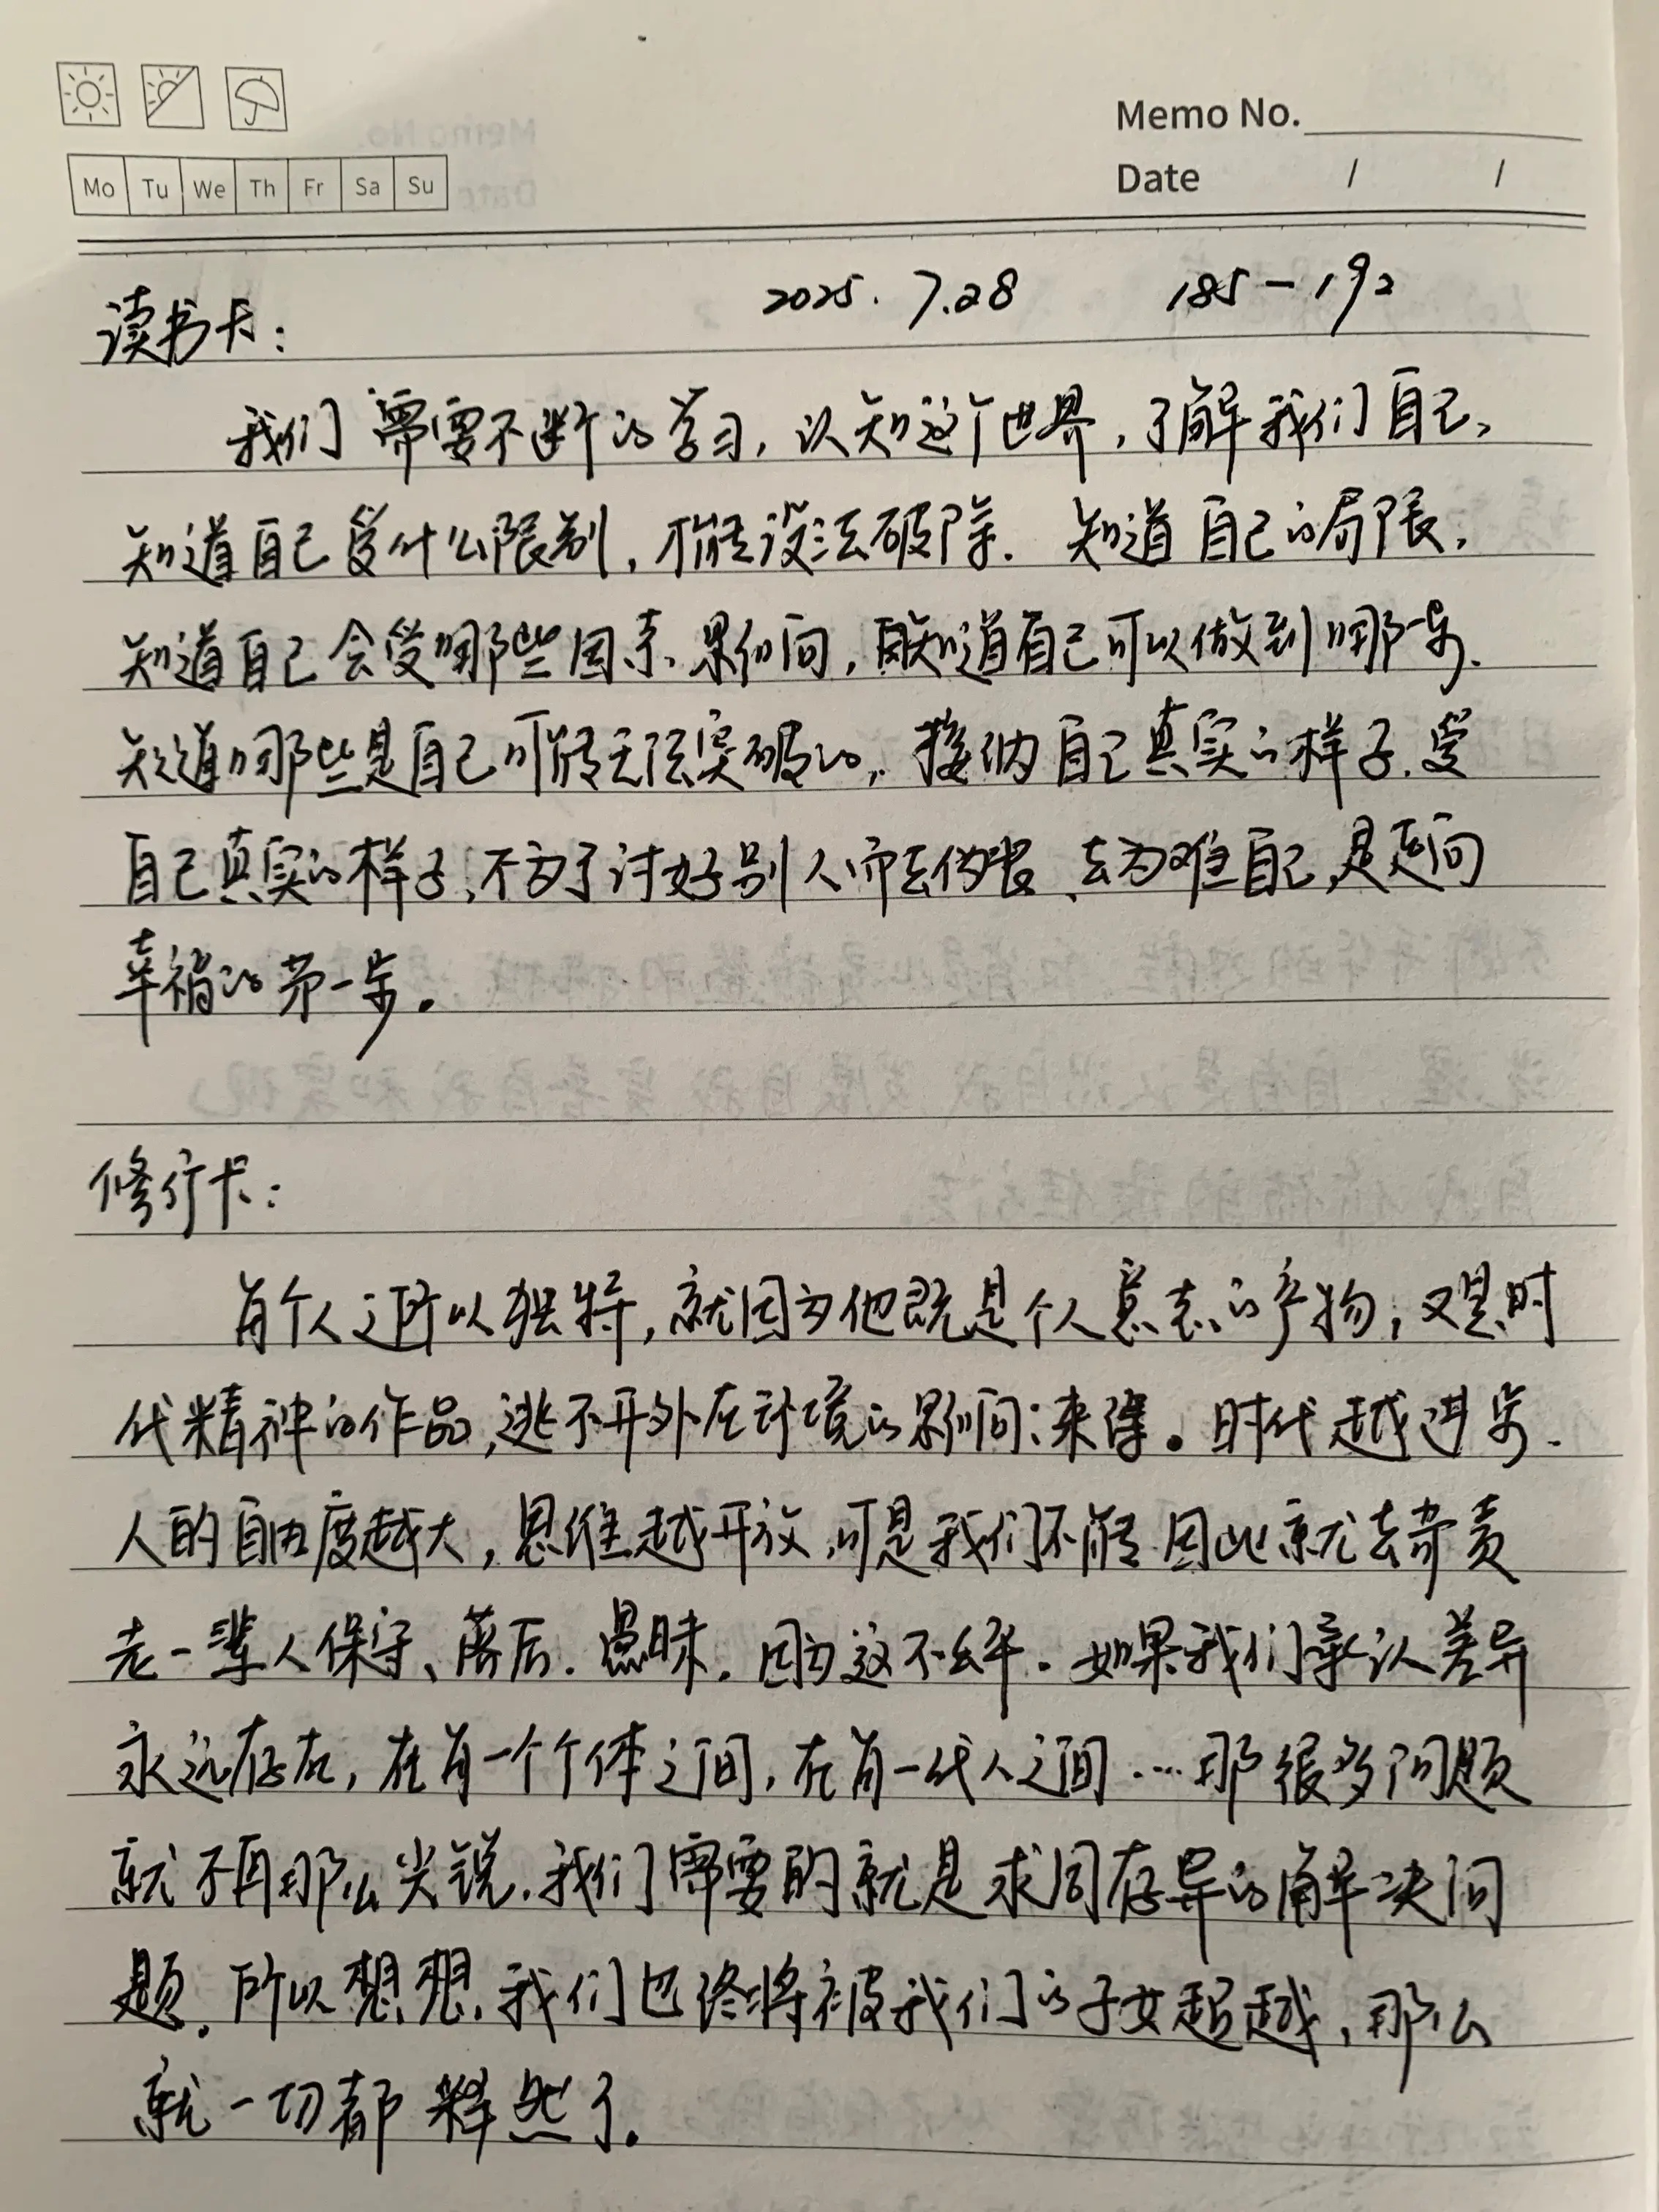 Memo No.
Mo Tu We Th Fr Sa Su
Date / /
读书卡： 2025.7.28 185-192
我们需要不断的学习，认知这个世界，了解我们自己，
知道自己受什么限制，才能设法破除．知道自己的局限，
知道自己会受哪些因素、影响，再知道自己可以做到哪一步．
知道哪些是自己可能无法突破的，接纳自己真实的样子．爱
自己真实的样子，不为了讨好别人而去伪装、去为难自己，是走向
幸福的第一步。
修行卡：
个人之所以独特，就因为他既是个人意志的产物；又是时
代精神的作品，逃不开外在环境的影响。时代越进步．
人的自由度越大，思维越开放，可是我们不能因此就去苛责
老一辈人保守、落后．愚昧．因为这不公平．如果我们承认差异
永远存在，在每一个个体之间，在每一代人之间…那很多问题
就不再那么尖锐．我们需要的就是求同存异的解决问
题．所以想想．我们也终将被我们的子女超越，那么
就一切都释然了．